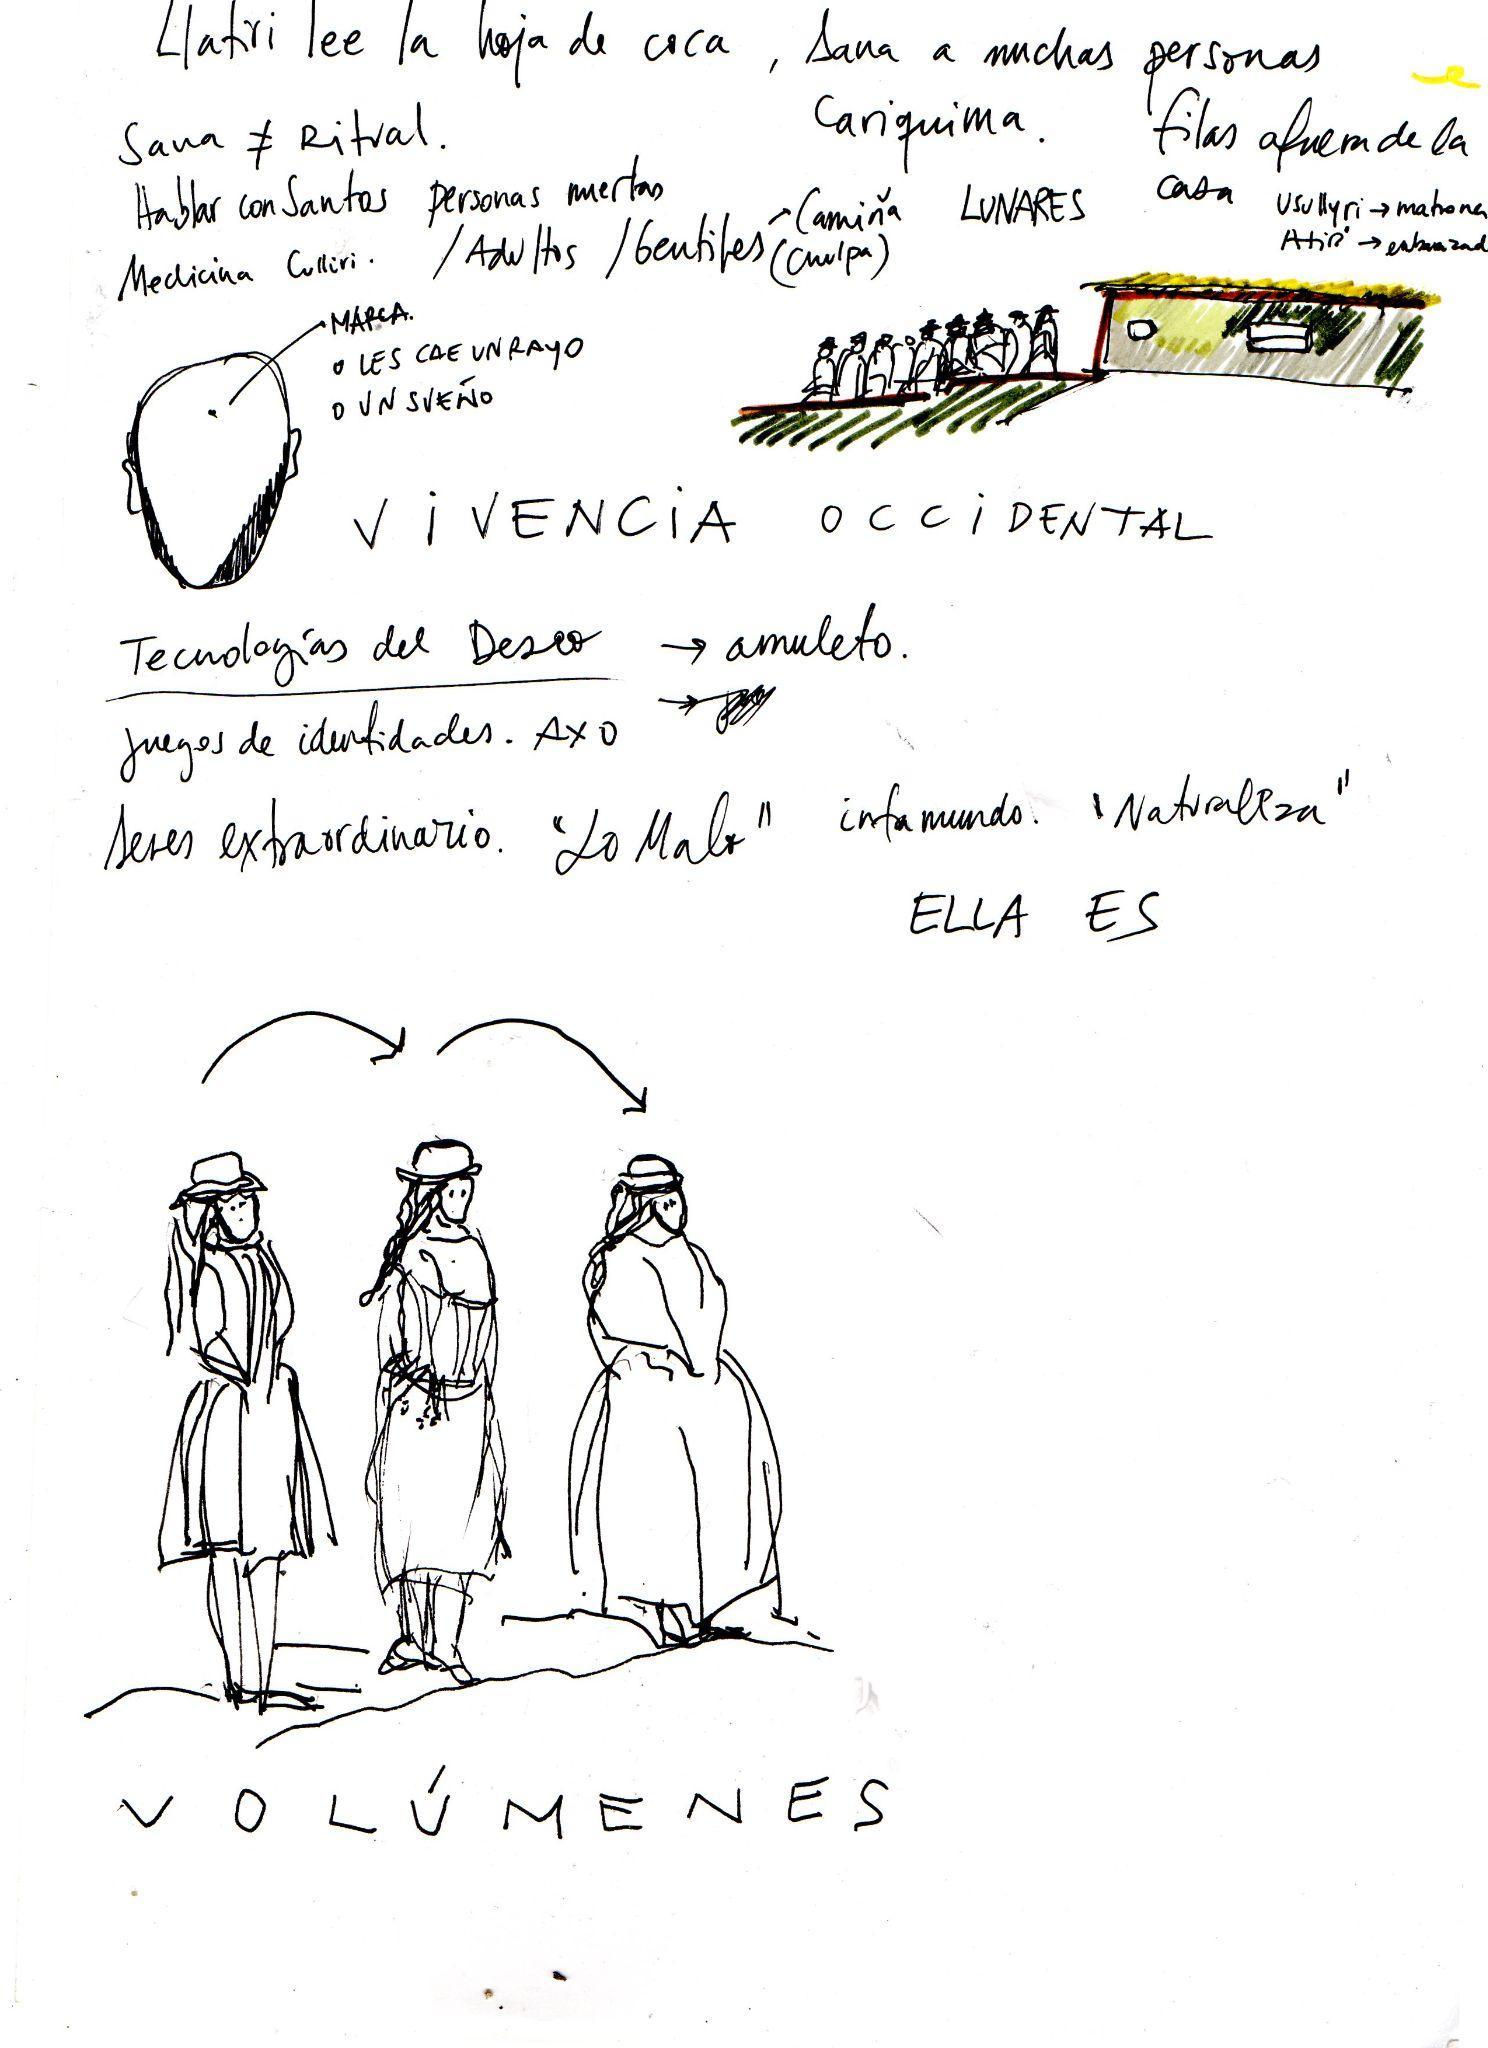 Llatiri lee la hoja de coca, sana a muchas personas
Cariquima.
filas afuera de la
casa
Sana ≠ Ritual.
Hablar con Santos personas muertas
/Adultos /Gentiles
→ Camiña
(Chulpa)
LUNARES
Usullyri → matrona
Atiri → embarazad
Medicina Culliri.
MARCA.
o LES CAE UN RAYO
o UN SUEÑO
VIVENCIA OCCIDENTAL
Tecnologías del Deseo → amuleto.
→
Juegos de identidades. AXO
Seres extraordinario. "Lo Malo" inframundo. "Naturaleza"
ELLA ES
VOLÚMENES